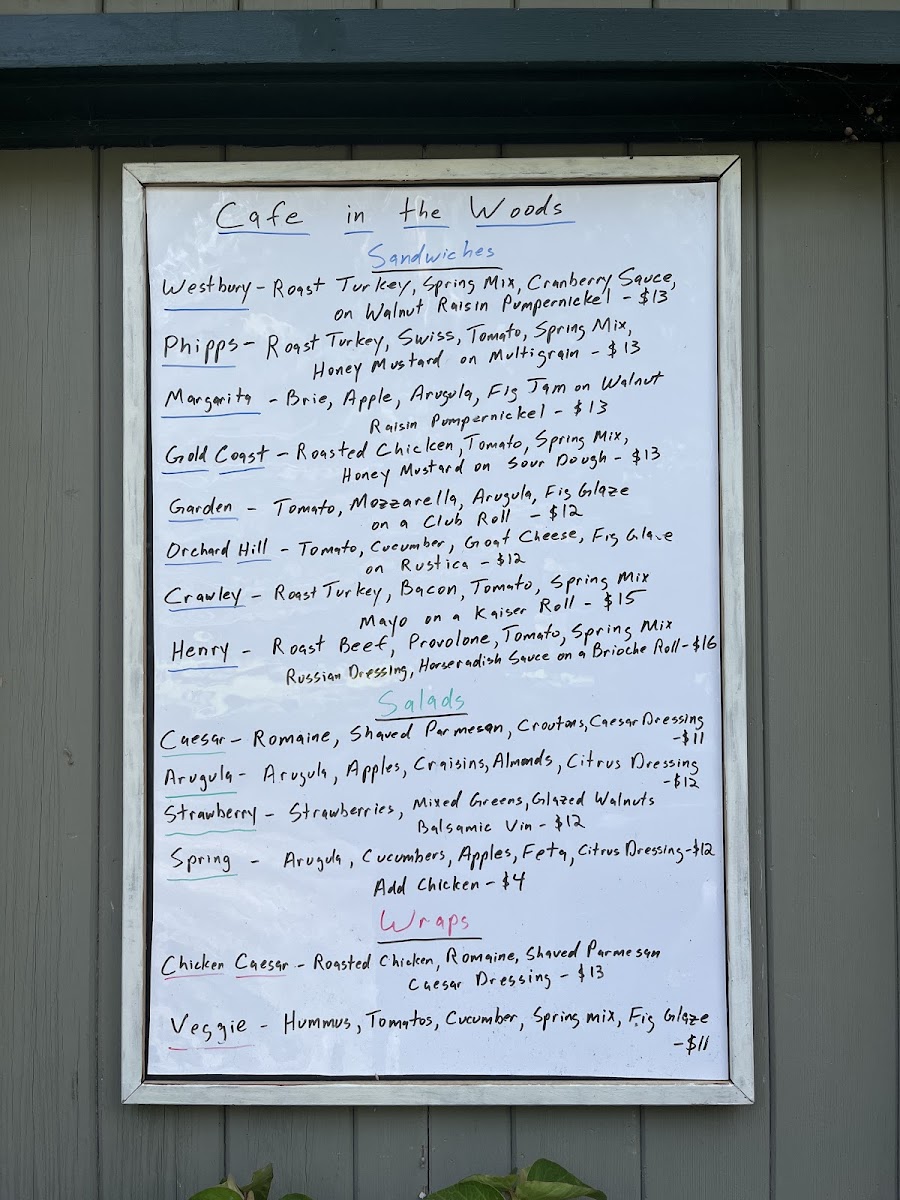 Cafe in the Woods
Sandwiches
Westbury - Roast Turkey, Spring Mix, Cranberry Sauce,
on Walnut Raisin Pumpernickel - $13
Phipps - Roast Turkey, Swiss, Tomato, Spring Mix,
Honey Mustard on Multigrain - $13
Margarita - Brie, Apple, Arugula, Fig Jam on Walnut
Raisin Pumpernickel - $13
Gold Coast - Roasted Chicken, Tomato, Spring Mix,
Honey Mustard on Sour Dough - $13
Garden - Tomato, Mozzarella, Arugula, Fig Glaze
on a Club Roll - $12
Orchard Hill - Tomato, Cucumber, Goat Cheese, Fig Glaze
on Rustica - $12
Crawley - Roast Turkey, Bacon, Tomato, Spring Mix
Mayo on a Kaiser Roll - $15
Henry - Roast Beef, Provolone, Tomato, Spring Mix
Russian Dressing, Horseradish Sauce on a Brioche Roll - $16
Salads
Caesar - Romaine, Shaved Parmesan, Croutons, Caesar Dressing
- $11
Arugula - Arugula, Apples, Craisins, Almonds, Citrus Dressing
- $12
Strawberry - Strawberries, Mixed Greens, Glazed Walnuts
Balsamic Vin - $12
Spring - Arugula, Cucumbers, Apples, Feta, Citrus Dressing - $12
Add Chicken - $4
Wraps
Chicken Caesar - Roasted Chicken, Romaine, Shaved Parmesan
Caesar Dressing - $13
Veggie - Hummus, Tomatos, Cucumber, Spring mix, Fig Glaze
- $11